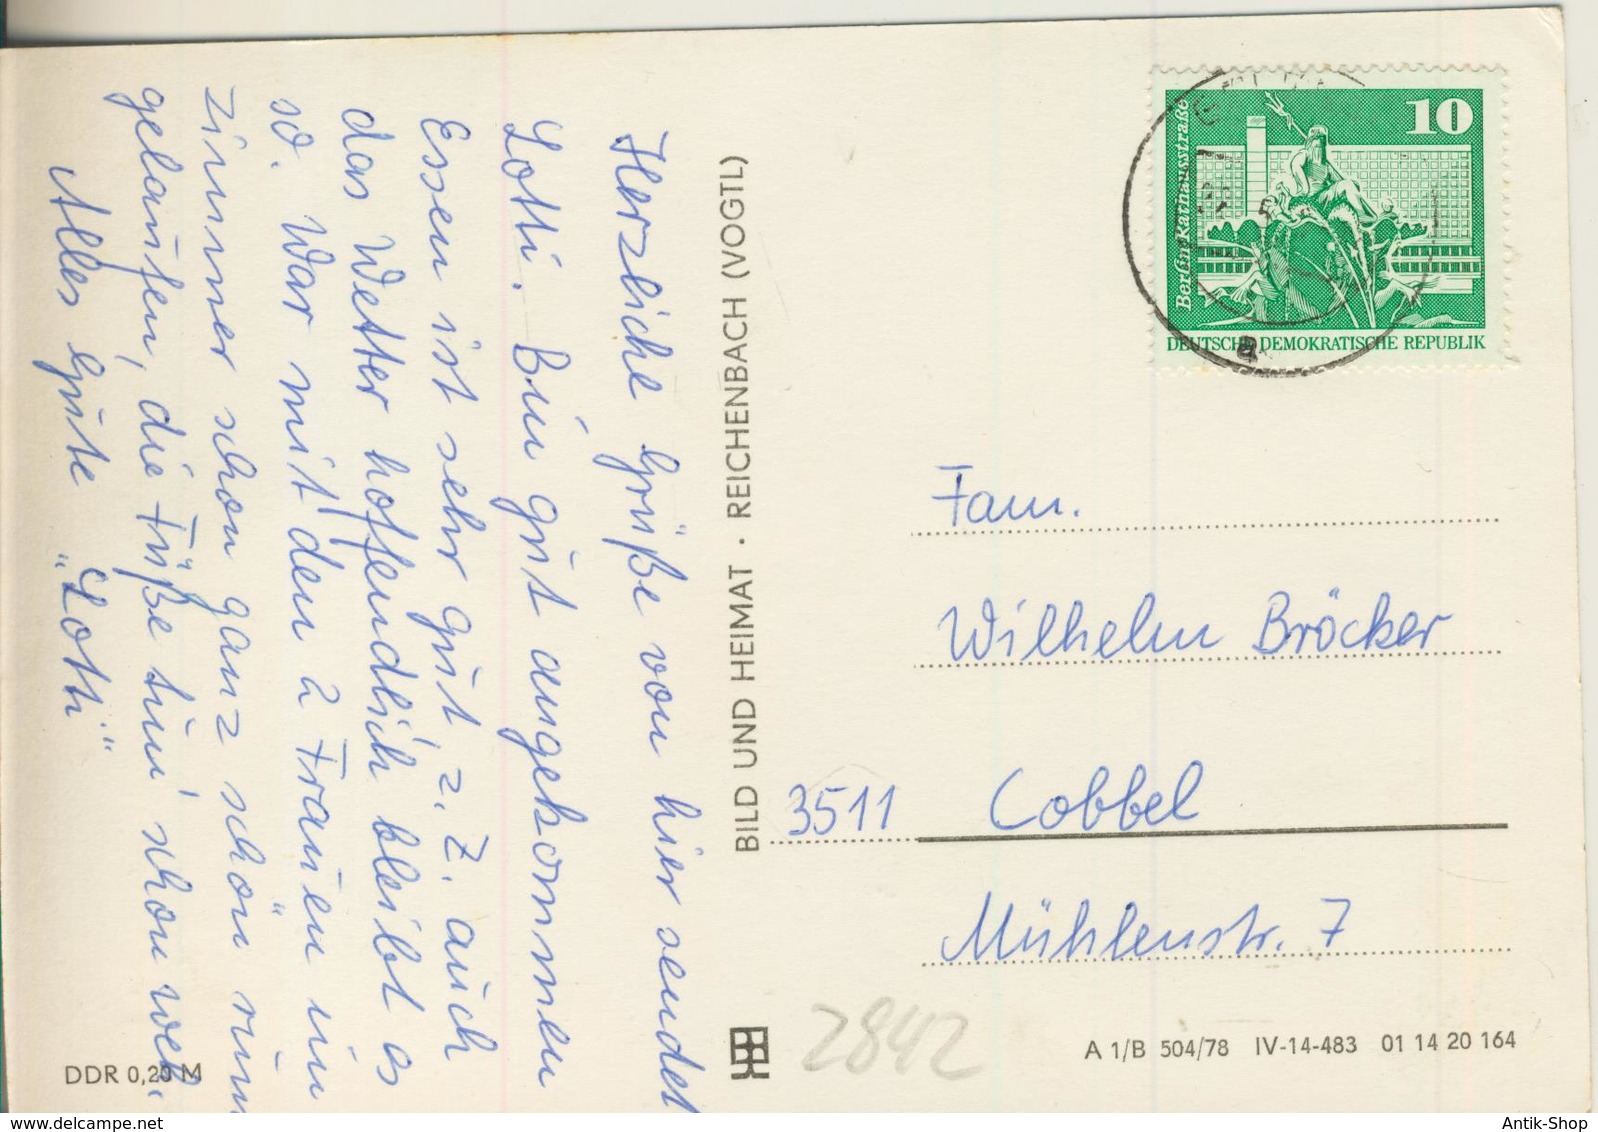 Herzliche Grüße von hier sendet
Lotti. Bin gut angekommen
Essen ist sehr gut, z. Z. auch
das Wetter hoffendlich bleibt es
so. War mit den 2 Frauen im
Zimmer schon ganz schön rum
gelaufen, die Füße tun schon weh.
Alles Gute "Lotti"
DDR 0,20 M
BILD UND HEIMAT · REICHENBACH (VOGTL)
10
Berlin Rathausstraße
DEUTSCHE DEMOKRATISCHE REPUBLIK
a
Fam.
Wilhelm Bröcker
3511 Cobbel
Mühlenstr. 7
2842
A 1/B 504/78 IV-14-483 01 14 20 164
www.delcampe.net
Antik-Shop